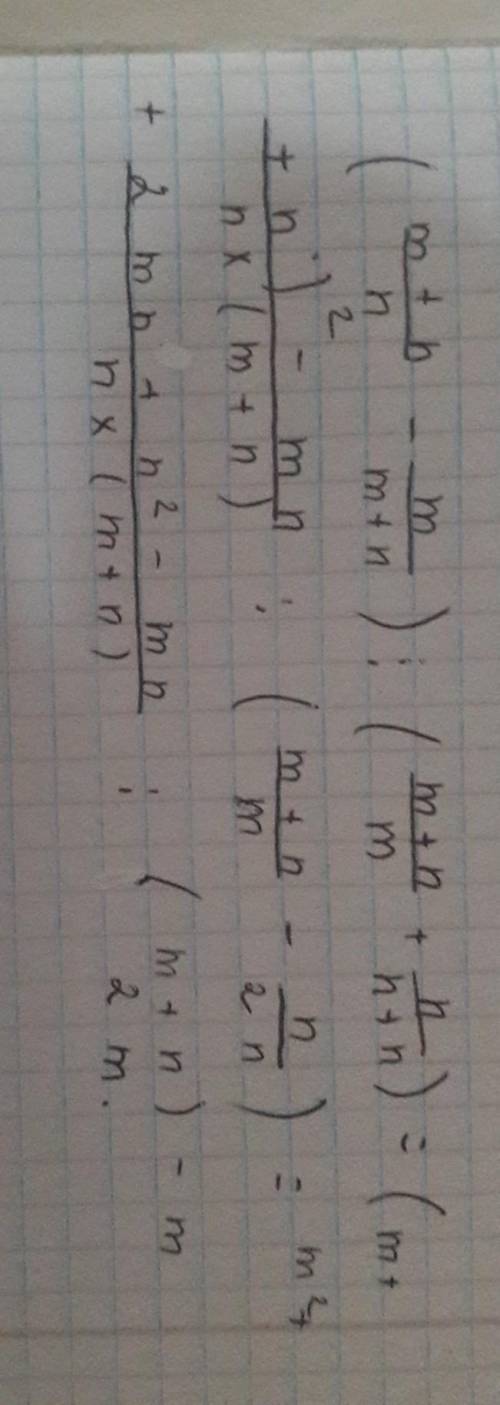 ( \frac{m+n}{n} - \frac{m}{m+n} ) : ( \frac{m+n}{m} + \frac{n}{n+n} ) = (m+
\frac{+n)^2 - mn}{n × (m+n)} : ( \frac{m+n}{m} - \frac{n}{2n} ) = m^2+
+ \frac{2mn + n^2 - mn}{n × (m+n)} : ( m+n) - m
2m.